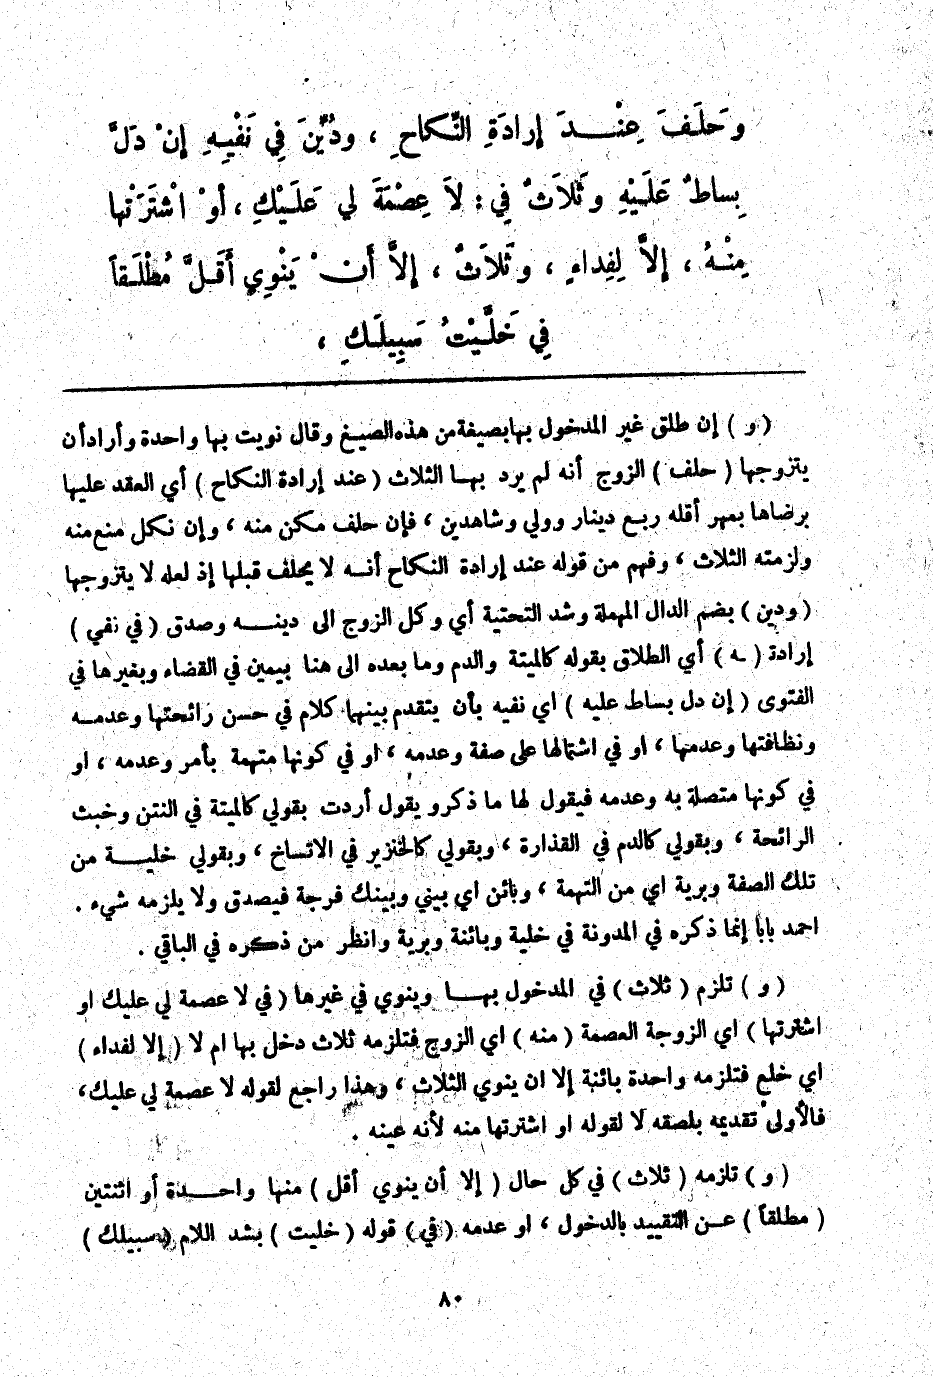 وَحَلَفَ عِنْــدَ إِرادَةِ النِّكاحِ ، ودُيِّنَ فِي نَفْيِهِ إِنْ دَلَّ
بِساطٌ عَلَيْهِ وَثَلاَثٌ فِي : لاَ عِصْمَةَ لي عَلَيْكِ ، أَوْ اشْتَرَتْها
مِنْهُ ، إِلاَّ لِفِداءٍ ، وَثَلاَثٌ ، إِلاَّ أَنْ يَنْوِي أَقَلَّ مُطْلَقاً
فِي خَلَّيْتُ سَبِيلَكِ ،
( و ) إن طلق غير المدخول بها بصيغة من هذه الصيغ وقال نويت بها واحدة وأراد أن
يتزوجها ( حلف ) الزوج أنه لم يرد بهــا الثلاث ( عند إرادة النكاح ) أي العقد عليها
برضاها بمهر أقله ربع دينار وولي وشاهدين ، فإن حلف مكن منه ، وإن نكل منع منه
ولزمته الثلاث ، وفهم من قوله عند إرادة النكاح أنــه لا يحلف قبلها إذ لعله لا يتزوجها
( ودين ) بضم الدال المهملة وشد التحتية أي وكل الزوج الى دينــــه وصدق ( في نفي )
إرادة ( ـه ) أي الطلاق بقوله كالميتة والدم وما بعده الى هنا بيمين في القضاء وبغيرها في
الفتوى ( إن دل بساط عليه ) اي نفيه بأن يتقدم بينهما كلام في حسن رائحتها وعدمــه
ونظافتها وعدمها ، او في اشتمالها على صفة وعدمه ، او في كونها متهمة بأمر وعدمه ، او
في كونها متصلة به وعدمه فيقول لها ما ذكر ويقول أردت بقولي كالميتة في النتن وخبث
الرائحة ، وبقولي كالدم في القذارة ، وبقولي كالخنزير في الاتساخ ، وبقولي خليــــة من
تلك الصفة وبرية اي من التهمة ، وبائن اي بيني وبينك فرجة فيصدق ولا يلزمه شيء .
احمد بابا إنما ذكره في المدونة في خلية وبائنة وبرية وانظر من ذكره في الباقي .
( و ) تلزم ( ثلاث ) في المدخول بهــــا وينوي في غيرها ( في لا عصمة لي عليك او
اشترتها ) اي الزوجة العصمة ( منه ) اي الزوج فتلزمه ثلاث دخل بها ام لا ( إلا لفداء )
اي خلع فتلزمه واحدة بائنة إلا ان ينوي الثلاث ، وهذا راجع لقوله لا عصمة لي عليك ،
فالأولى تقديمه بلصقه لا لقوله او اشترتها منه لأنه عينه .
( و ) تلزمه ( ثلاث ) في كل حال ( إلا أن ينوي أقل ) منها واحــــدة أو اثنتين
( مطلقاً ) عــن التقييد بالدخول ، او عدمه ( في ) قوله ( خليت ) بشد اللام ( سبيلك )
٨٠